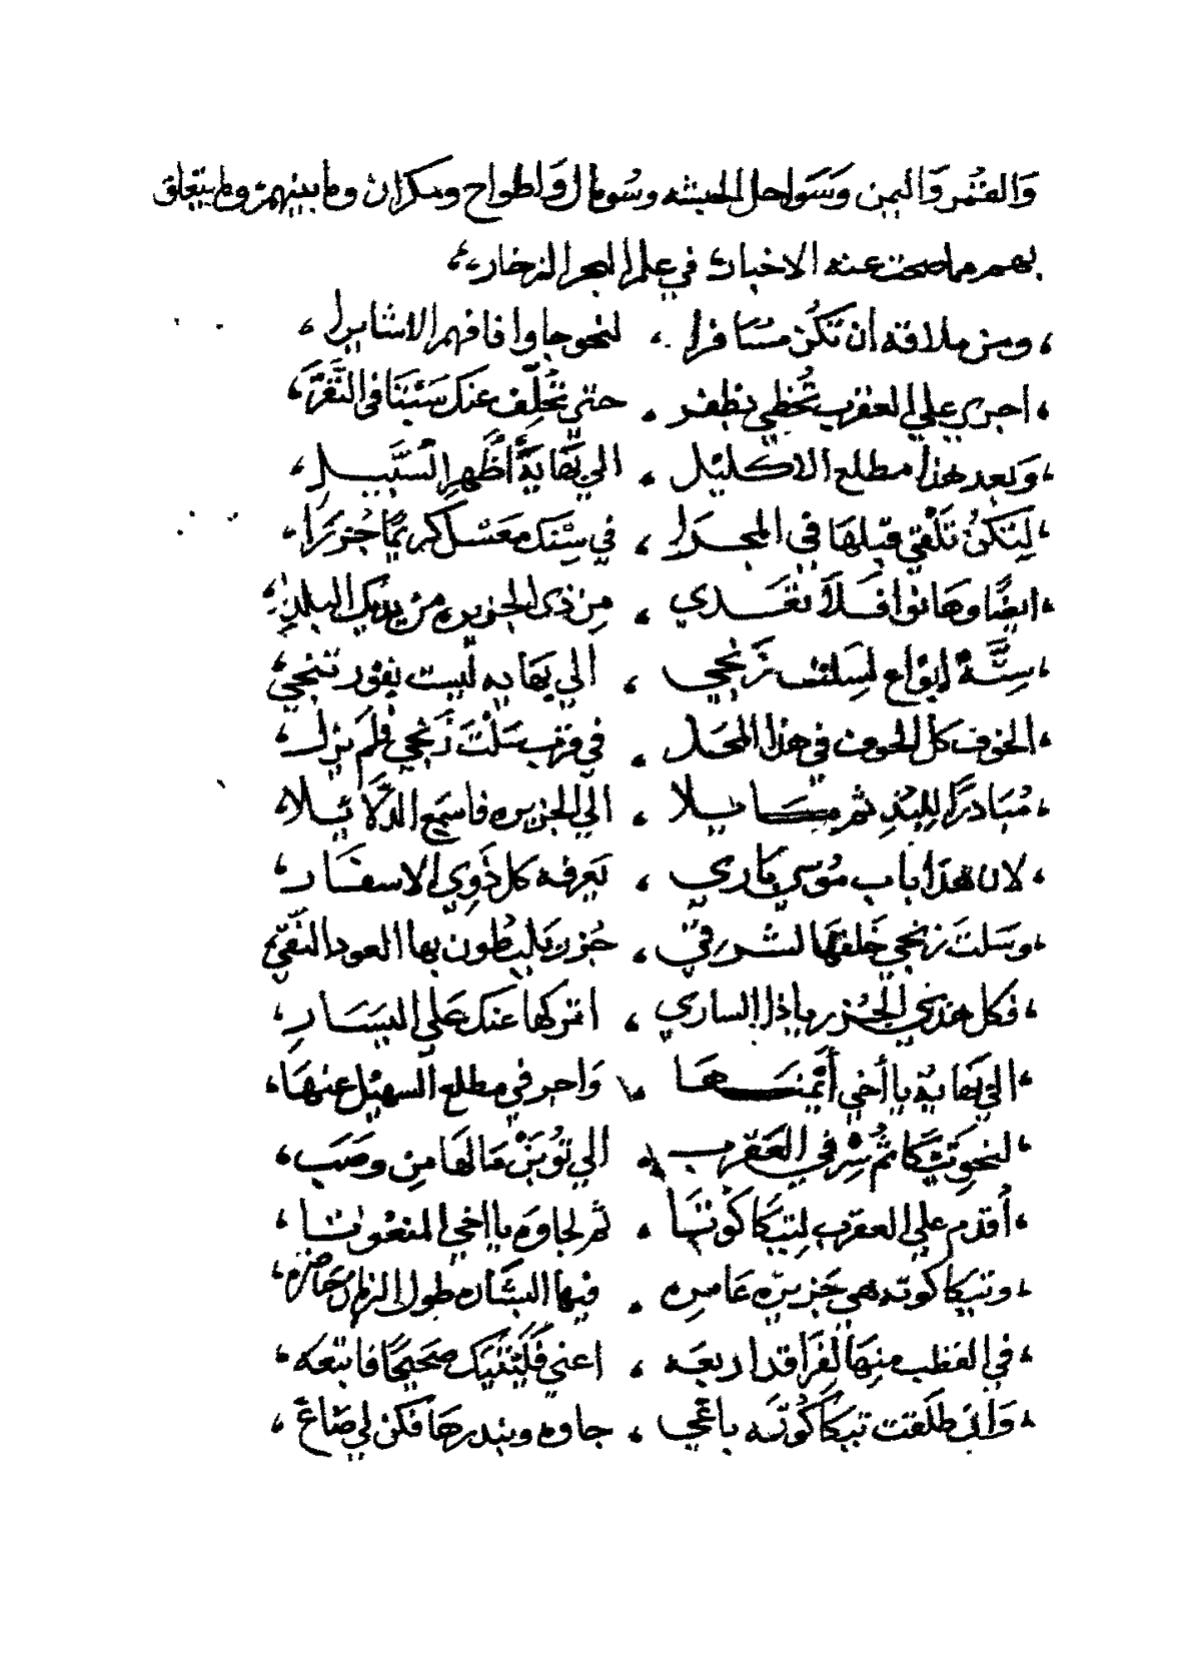 والقُمر واليمن وسواحل الحبشه وسُومال واطواح ومكران وما بينهم وما يتعلق
بهم مما صحت عنه الاخبار في علم البحر الزخار
ومن ملاقه أن تكُن مسافرا ، لنحو جاوا فافهم الاشايرا
اجري علي العقرب تُحظي بظفر ، حتي تُخلِّف عنك سَبتَا في النَّفَر
وبعد هذا مطلع الاكليل ، الي نهايةٍ أظهر السَّبيل
لِتكنْ تلْقي قبلها في المجرا ، في سِتنك معسل كريمًا جُزرَا
ايضًا وهانوا فلا تعَدي ، مِن ذي الجزيره من يديك البلد
سِتَّةُ ابواع لسلت زنجي ، الي نهايه ليست بفور تنجي
الخوف كل الخوف في هذا المحل ، في قرب سلْتَ زنجي فلم يزل
مُبادرًا لِلبُذِ ثم مكائيلا ، الي الجزيره فاسمع الدَّلائيلا
لان هذا باب مُوسي باري ، يعرفه كل ذَوِي الاسفار
وسلت زنجي خلفها لشرقي ، جُزر باليطون بها العود النقي
فكل هذي الجُزر ياذا الساري ، اتركها عنك علي اليسار
الي نهاية يا أخي أيمنَها ، واجر في مطلع السهيل عنها
لنحو تيكا ثم سِر في العقرب ، الي تُوبن مالها من وصَب
أقدم علي العقرب لِتيكا كوتا ، ثم لجاوه يا اخي المنعوتا
وتيكا كوته هي جزيره عامره ، فيها البشاره طول الزمان حاضره
في القطب منها لفراقد اربعه ، اعني فلِيتنيك صحيحًا فاتبعه
وان طلَقت تيكا كُوته باغي ، جاوه وبندرها فكن لي صاغ